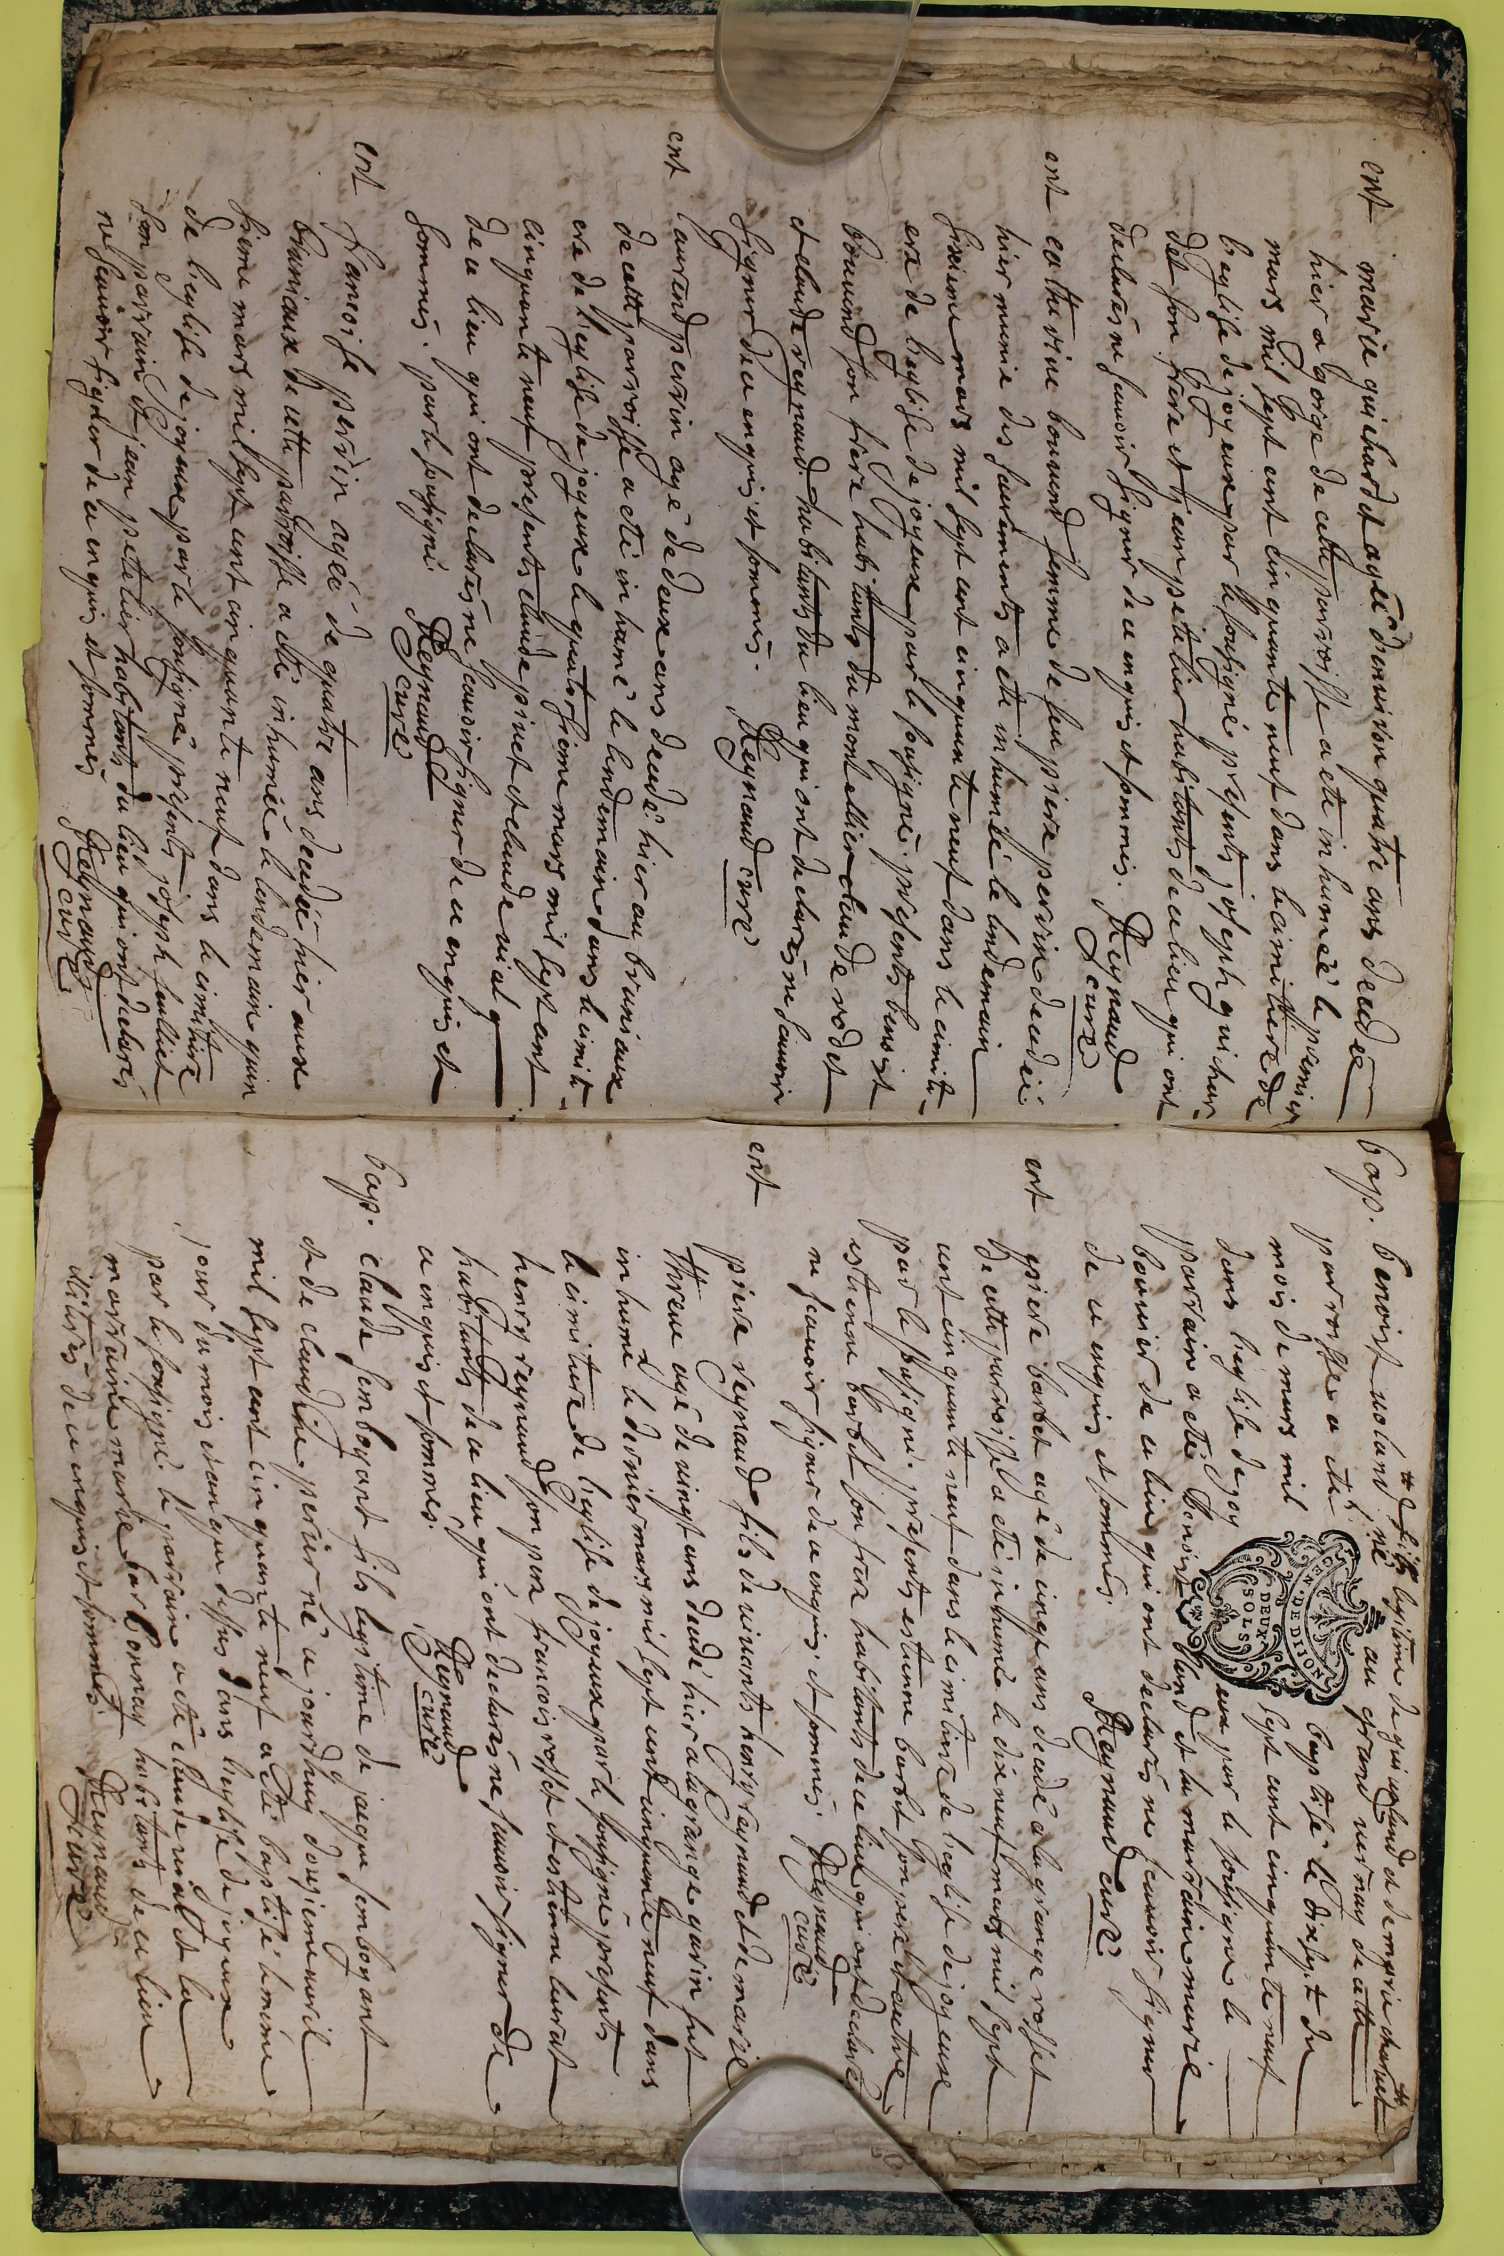 ent marie guichard agée d'environ quatre ans decedée
hier a la gorge de cette parroisse a eté inhumée le premier
mars mil sept cent cinquante neuf dans le cimitiere de
l'eglise de joyeux par le soussigné presents joseph guichar
det son frere et jean petelier habitants de ce lieu qui ont
declarés ne scavoir signer de ce enquis et sommés. Reynaud
curé
ent catherine bouvend femme de feu piere perrin decedée
hier munie des sacrements a eté inhumée le lendemain
sixieme mars mil sept cent cinquante neuf dans le cimiti-
ere de l'eglise de joyeux par le soussigné. presents benoist
bouvend son frere habitants du montellier claude rodet
et claude reynaud habitants du lieu qui ont declarés ne scavoir
signer de ce enquis et sommés. Reynaud curé
ent laurend perrin agé de deux ans decedé hier au bruniaux
de cette parroisse a eté inhumé le lendemain dans le cimiti-
ere de l'eglise de joyeux le quatorsieme mars mil sept cent
cinquante neuf presents claude pinet et claude vial
de ce lieu qui ont declarés ne scavoir signer de ce enquis et
sommés. par le soussigné Reynaud
curé
ent francoise perrin agée de quatre ans decedée hier aux
bruniaux de cette parroisse a eté inhumée le lendemain quin
sieme mars mil sept cent cinquante neuf dans le cimitiere
de l'eglise de joyeux par le soussigné presents joseph
son parrain et jean petelier habitants du lieu qui ont declarés
ne scavoir signer de ce enquis et sommés Reynaud
curé
fils legitime de et de marie
bap. benoist voland né au grand vernay de cette
parroisse a eté baptisé le dixsept du
mois de mars mil sept cent cinquante neuf
dans l'eglise de joyeux par le soussigné le
parrain a eté benoist et la marraine marie
bouvier de ce lieu qui ont declarés ne scavoir signer
de ce enquis et sommés. Reynaud curé
GEN. DE DIJON
DEUX
SOLS
ent piere barbet agé de vingt ans decedé a la grange rosset
de cette parroisse a eté inhumé le dixneuf mars mil sept
cent cinquante neuf dans le cimitiere de l'eglise de joyeux
par le soussigné. presents estienne barbet son pere et autre
estienne barbet son frere habitants de ce lieu qui ont declarés
ne scavoir signer de ce enquis et sommés. Reynaud
curé
ent piere reynaud fils de vivants henry reynaud et de marie
agé de vingt ans decedé hier a la grange garin fut
inhumé le dernier mars mil sept cent cinquante neuf dans
le cimitiere de l'eglise de joyeux par le soussigné presents
henry reynaud son pere francois rosset et estienne
habitants de ce lieu qui ont declarés ne scavoir signer de
ce enquis et sommés. Reynaud
curé
bap. claude fils legitime de jacque
et de claudine perier né aujourdhuy dousieme avril
mil sept cent cinquante neuf a eté baptisé le même
jour du mois et an que dessus dans l'eglise de joyeux
par le soussigné. le parrain a eté claude et la
marraine marie habitants de ce lieu
illiterés de ce enquis et sommés. Reynaud
curé